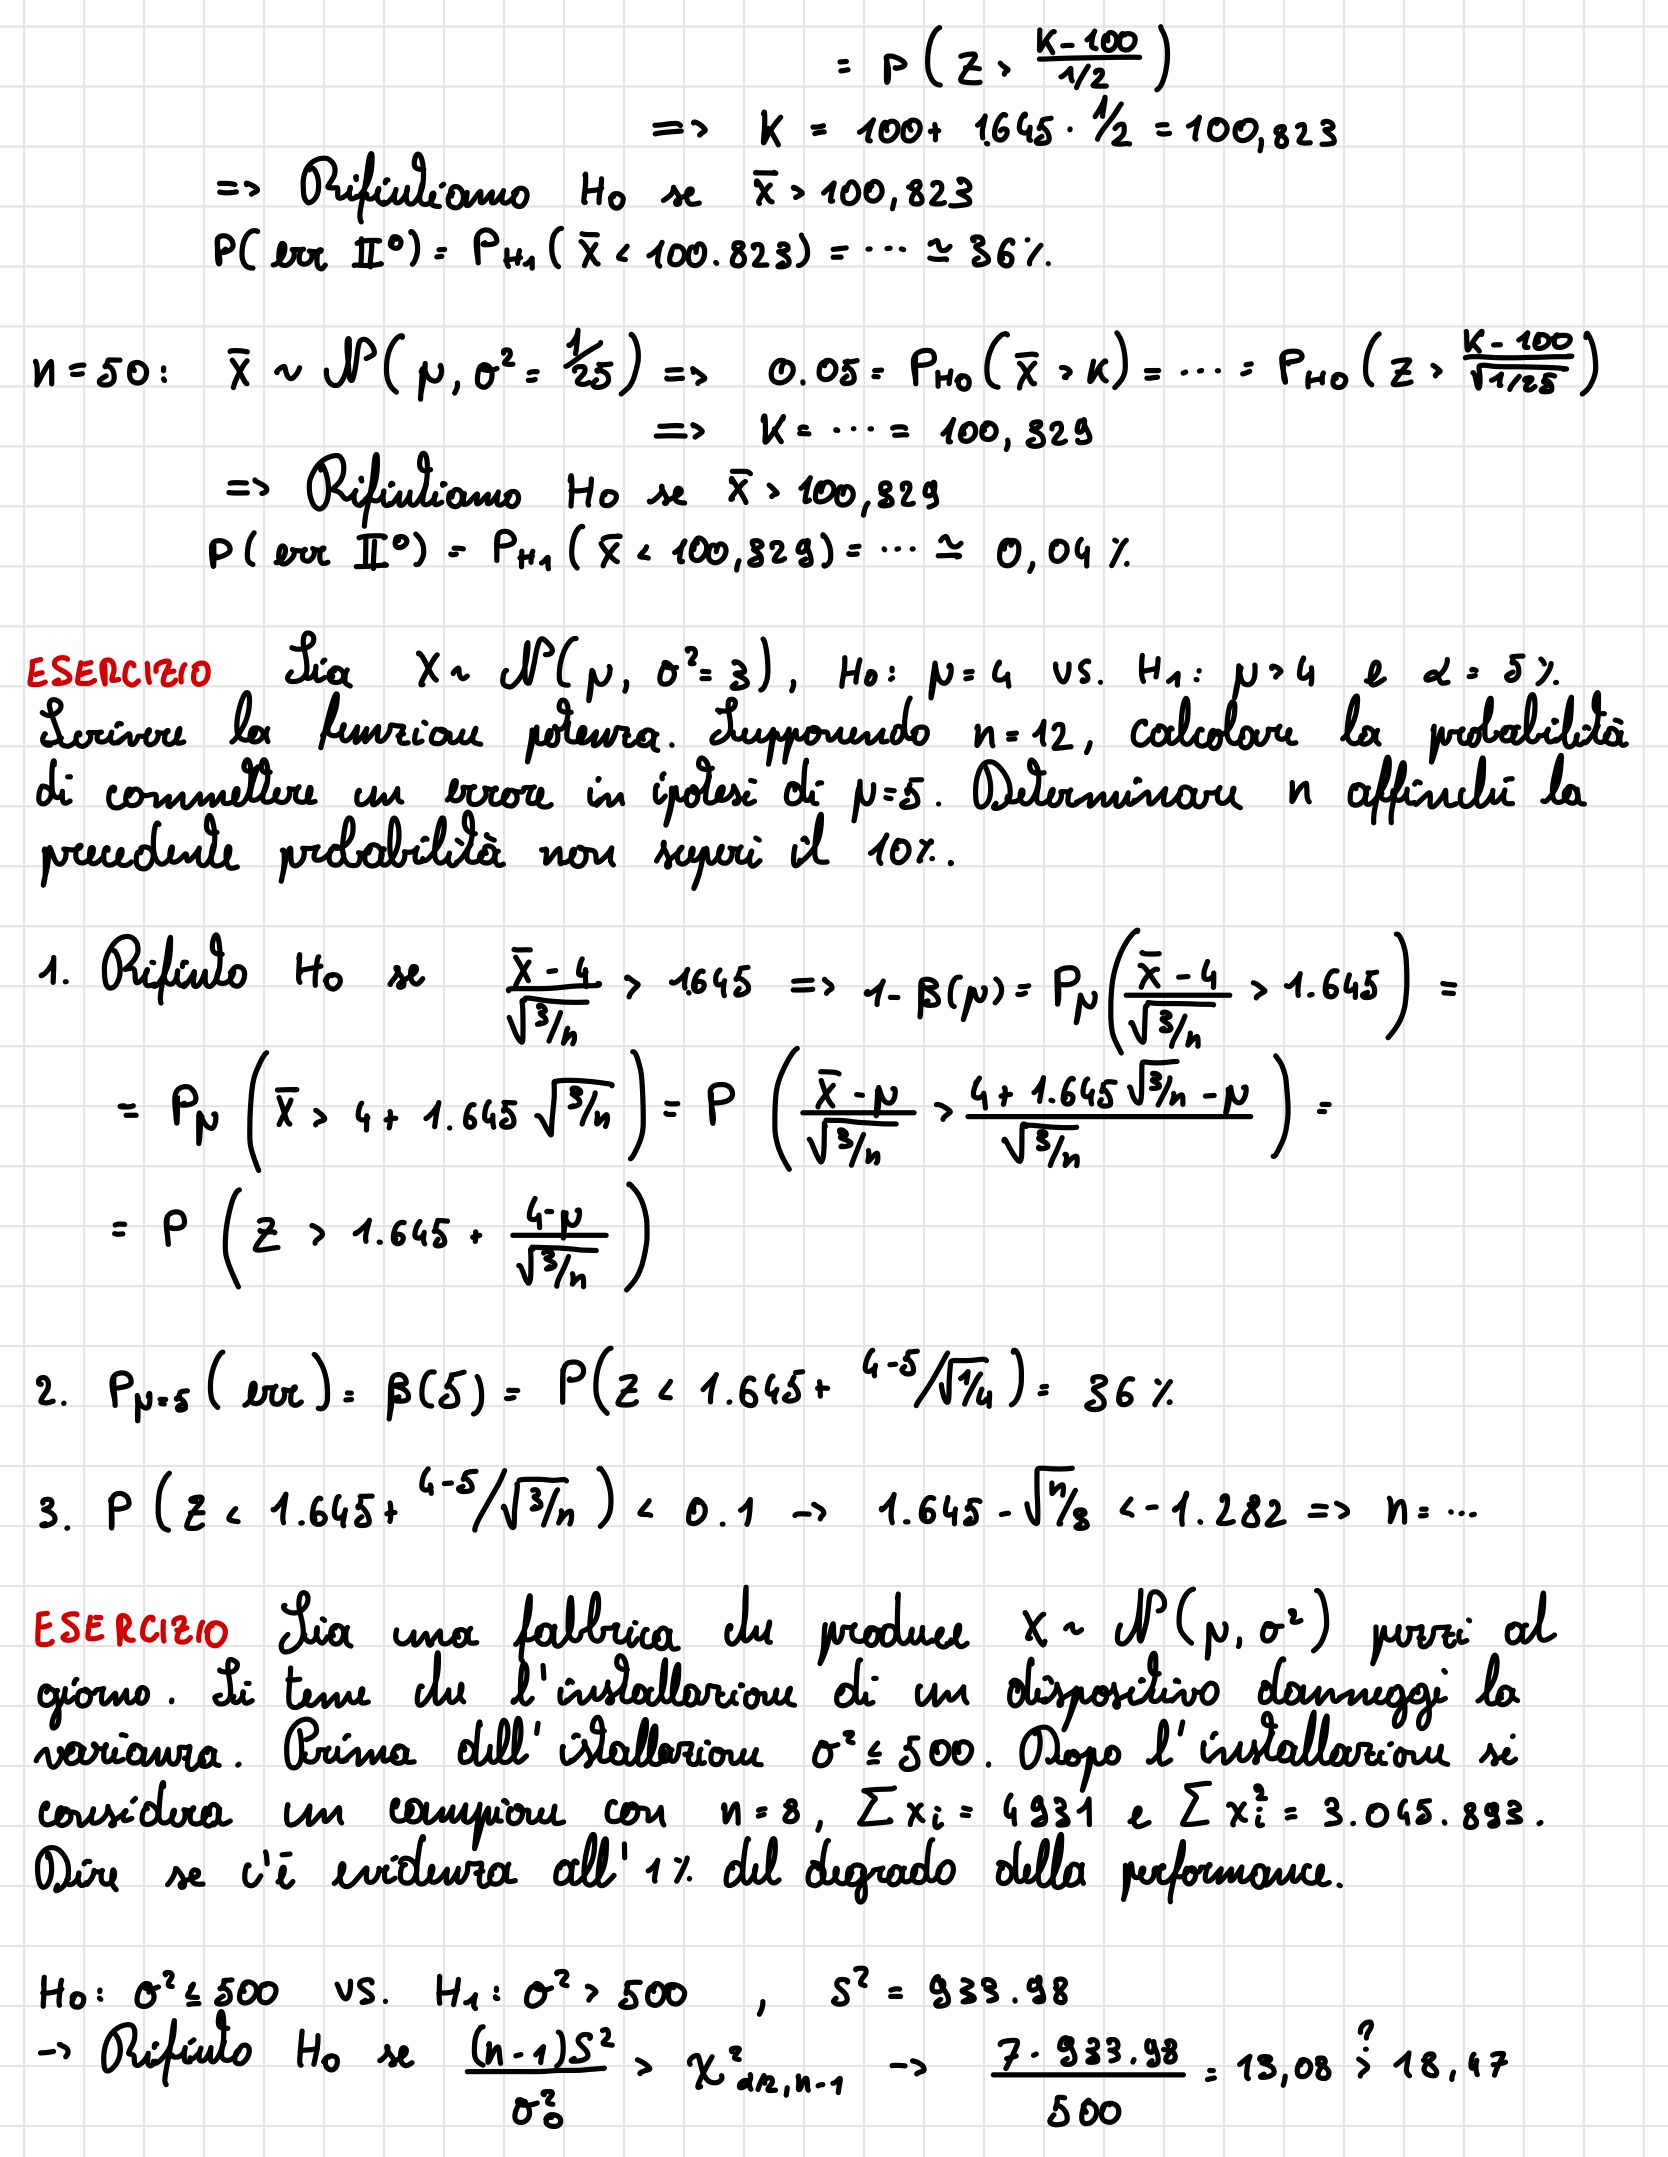 = P ( Z > (K - 100)/(1/2) )
=> K = 100 + 1.645 · 1/2 = 100,823
=> Rifiutiamo H₀ se x̄ > 100,823
P( err II°) = P_H₁ ( x̄ < 100.823) = ··· ≃ 36 %.
n = 50: x̄ ~ N( μ, σ² = 1/25 ) => 0.05 = P_H₀ ( x̄ > K ) = ··· = P_H₀ ( Z > (K - 100)/√(1/25) )
=> K = ··· = 100,329
=> Rifiutiamo H₀ se x̄ > 100,329
P( err II°) = P_H₁ ( x̄ < 100,329) = ··· ≃ 0,04 %
ESERCIZIO Sia X ~ N( μ, σ² = 3), H₀: μ = 4 vs. H₁: μ > 4 e α = 5 %.
Scrivere la funzione potenza. Supponendo n = 12, calcolare la probabilità
di commettere un errore in ipotesi di μ = 5. Determinare n affinché la
precedente probabilità non superi il 10%.
1. Rifiuto H₀ se (x̄ - 4)/√(3/n) > 1.645 => 1 - β(μ) = P_μ ( (x̄ - 4)/√(3/n) > 1.645 ) =
= P_μ ( x̄ > 4 + 1.645 √(3/n) ) = P ( (x̄ - μ)/√(3/n) > (4 + 1.645 √(3/n) - μ)/√(3/n) ) =
= P ( Z > 1.645 + (4 - μ)/√(3/n) )
2. P_μ=5 ( err ) = β(5) = P( Z < 1.645 + 4-5/√(1/4) ) = 36 %
3. P ( Z < 1.645 + 4-5/√(3/n) ) < 0.1 -> 1.645 - √(n/3) < - 1.282 => n = ···
ESERCIZIO Sia una fabbrica che produce X ~ N( μ, σ² ) pezzi al
giorno. Si teme che l'installazione di un dispositivo danneggi la
varianza. Prima dell'istallazione σ² ≤ 500. Dopo l'installazione si
considera un campione con n = 8, Σ xᵢ = 4931 e Σ xᵢ² = 3.045.893.
Dire se c'è evidenza all'1% del degrado della performance.
H₀: σ² ≤ 500 vs. H₁: σ² > 500 , S² = 933.98
-> Rifiuto H₀ se (n-1)S²/σ₀² > χ²_α/2, n-1 -> 7 · 933.98/500 = 13,08 >? 18,47